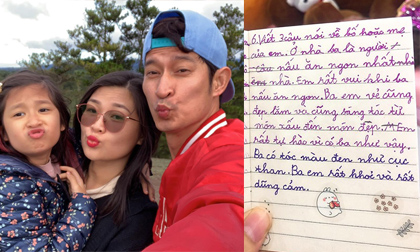 6. Viết 3 câu nói về bố hoặc mẹ
của em. Ở nhà ba là người
nấu ăn ngon nhất nhà
nhà. Em rất vui khi ba
nấu ăn ngon. Ba em vẽ cũng
đẹp lắm và cũng sáng tác từ
món xấu đến món đẹp. Em
rất tự hào vì có ba như vậy.
Ba có tóc màu đen như cục
than. Ba em rất khỏe và rất
dũng cảm.